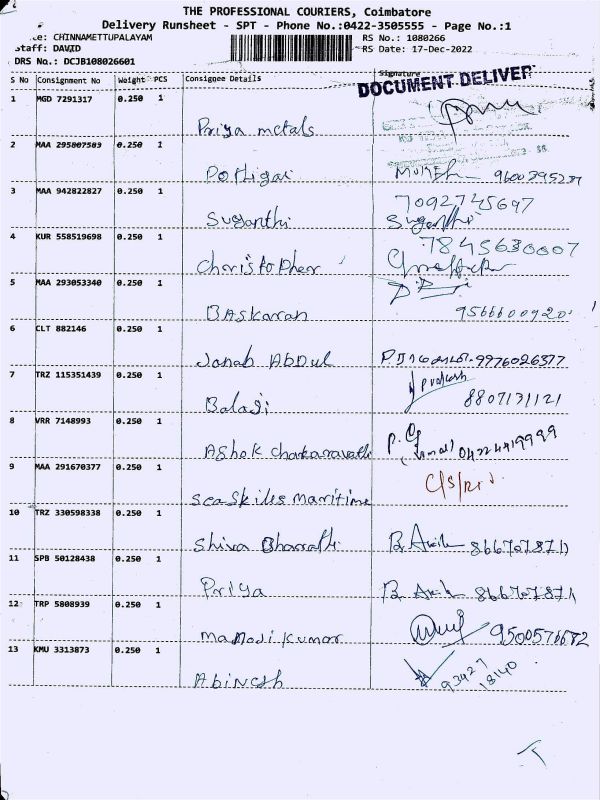 THE PROFESSIONAL COURIERS, Coimbatore
Delivery Runsheet - SPT - Phone No.:0422-3505555 - Page No.:1
CHINNAMETTUPALAYAM RS No.: 1080266
Staff: DAVID RS Date: 17-Dec-2022
DRS No.: DCJB108026601
S No Consignment No Weight PCS Consignee Details Signature
DOCUMENT DELIVER
1 MGD 7291317 0.250 1
Priya metals
2 MAA 295807589 0.250 1
Pothigai 9600395237
3 MAA 942822827 0.250 1 7092745697
Suganthi Suganthi
4 KUR 558519698 0.250 1 7845630007
Christopher
5 MAA 293053340 0.250 1
BASKaran 9566600920
6 CLT 882146 0.250 1
Janab Abdul 9976026377
7 TRZ 115351439 0.250 1 Prakash
Balaji 8807131121
8 VRR 7148993 0.250 1
AShok chakaravathi
9 MAA 291670377 0.250 1
seaskiles maritime
10 TRZ 330598338 0.250 1
Shiva Bharathi
11 SPB 50128438 0.250 1
Priya
12 TRP 5808939 0.250 1
Kumar 9500576672
13 KMU 3313873 0.250 1 93427
Abinesh 18140